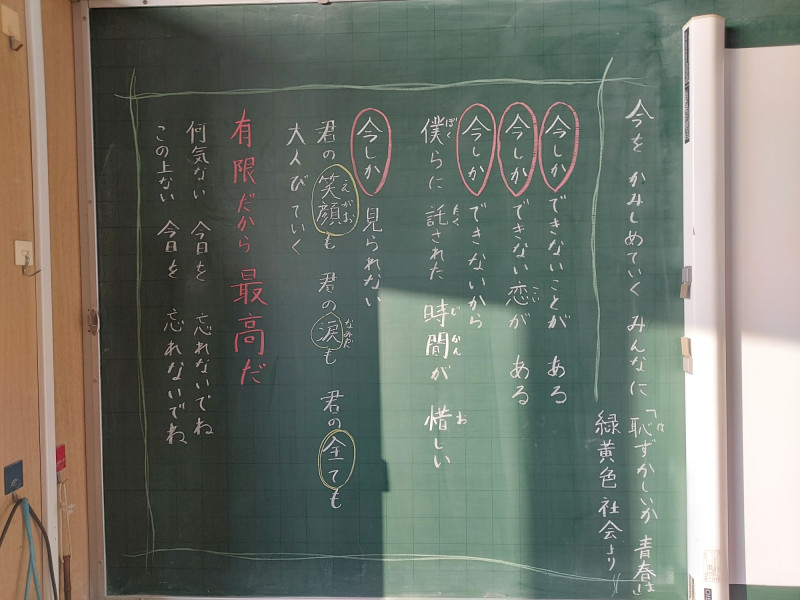 今を かみしめていく みんなに
「恥ずかしいか 青春は」
緑黄色社会より
今しか できないことが ある
今しか できない恋が ある
今しか できないから
僕らに 託された 時間が 惜しい
今しか 見られない
君の 笑顔も 君の 涙も 君の 全ても
大人びていく
有限だから 最高だ
何気ない 今日を 忘れないでね
この上ない 今日を 忘れないでね